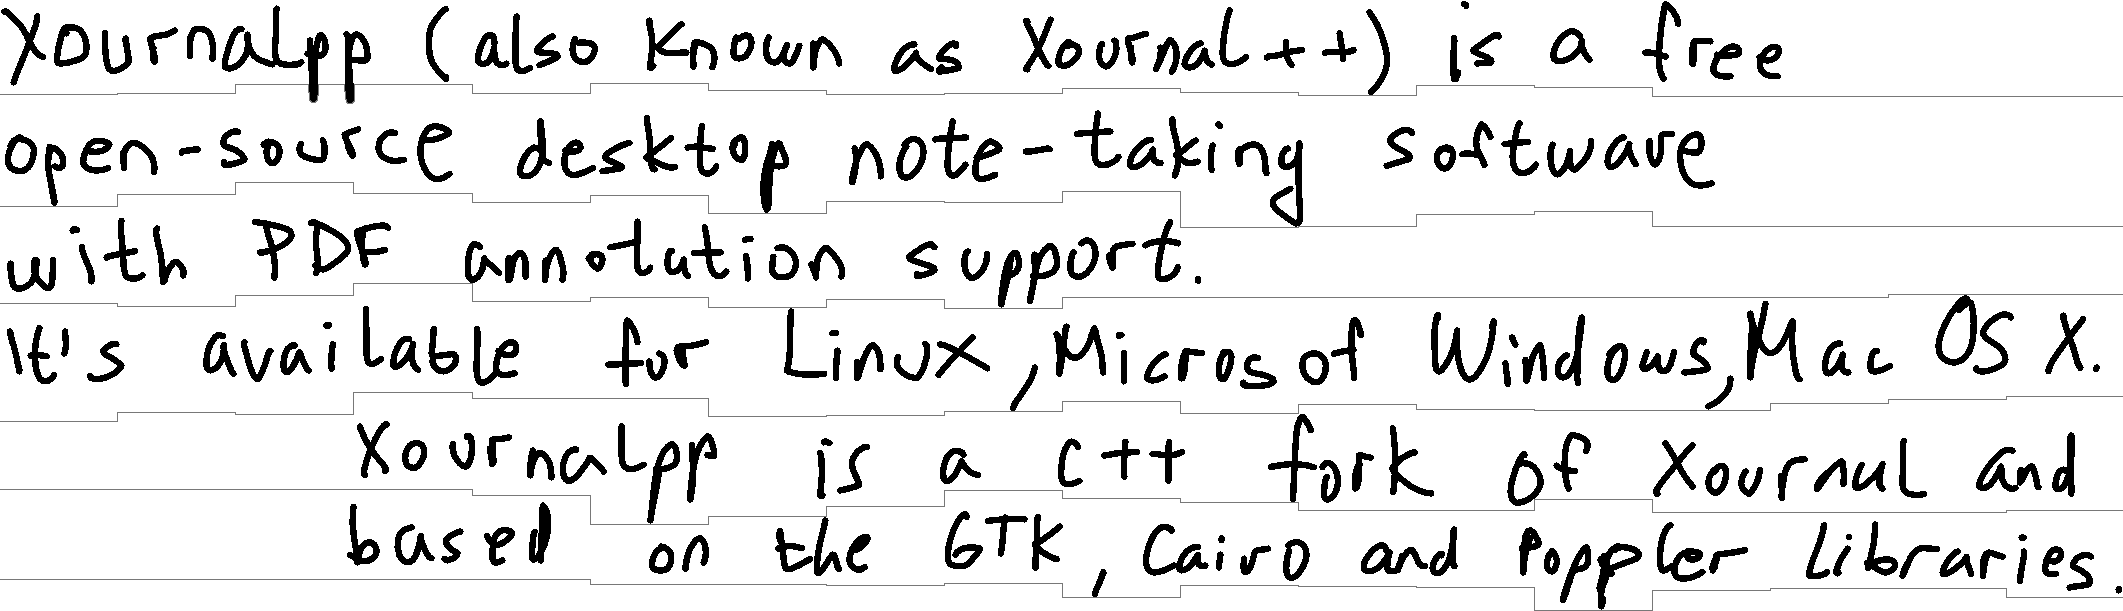 Xournalpp (also known as Xournal++) is a free
open-source desktop note-taking software
with PDF annotation support.
It's available for Linux, Microsof Windows, Mac OS X.
Xournalpp is a C++ fork of Xournal and
based on the GTK, Cairo and Poppler libraries.